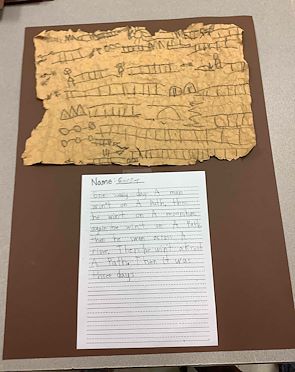 Name:
One sunny day A man
wint on A Path, then
he wint on A mountain
again he wint on A Path
then he swam across A
river. Then he wint
A Path. Then it was
three days